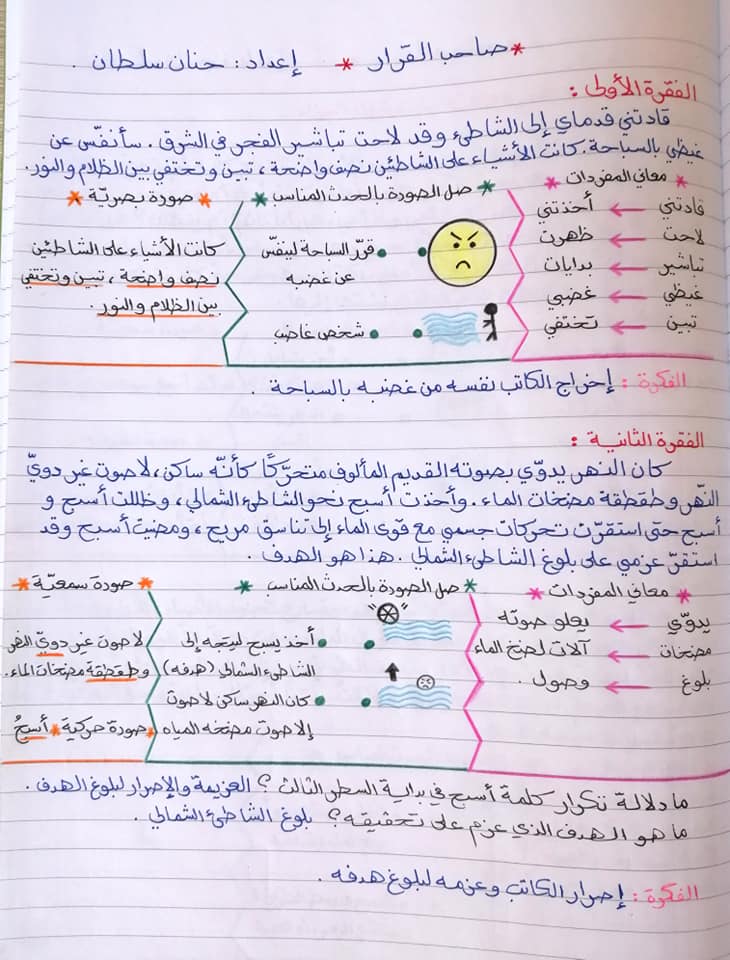 * صاحب القرار * إعداد : حنان سلطان .
الفقرة الأولى :
قادتني قدماي إلى الشاطىء وقد لاحت تباشير الفجر في الشرق . سأنفّس عن
غيضي بالسباحة . كانت الأشياء على الشاطئين نصف واضحة ، تبين وتختفي بين الظلام والنور .
* معاني المفردات *
قادتني ← أخذتني
لاحت ← ظهرت
تباشير ← بدايات
غيظي ← غضبي
تبين ← تختفي
* صل الصورة بالحدث المناسب *
قرّر السباحة لينفّس
عن غضبه
شخص غاضب
* صورة بصريّة *
كانت الأشياء على الشاطئين
نصف واضحة ، تبين وتختفي
بين الظلام والنور .
الفكرة : إخراج الكاتب نفسه من غضبه بالسباحة .
الفقرة الثانية :
كان النهر يدوّي بصوته القديم المألوف متحرّكًا كأنّه ساكن ، لا صوت غير دويّ
النّهر وطقطقة مضخات الماء . وأخذت أسبح نحو الشاطىء الشمالي ، وظللت أسبح و
أسبح حتى استقرّت تحركات جسمي مع قوى الماء إلى تناسق مريح ، ومضيت أسبح وقد
استقرّ عزمي على بلوغ الشاطىء الشمالي . هذا هو الهدف .
* معاني المفردات *
يدوّي ← يعلو صوته
مضخات ← آلات لضخ الماء
بلوغ ← وصول .
* صل الصورة بالحدث المناسب *
أخذ يسبح ليتجه إلى
الشاطىء الشمالي (هدفه)
كان النهر ساكن لا صوت
إلا صوت مضخه المياه
* صورة سمعيّة *
لا صوت غير دويّ النهر
وطقطقة مضخات الماء .
* صورة حركية * أسبحُ
ما دلالة تكرار كلمة أسبح في بداية السطر الثالث ؟ العزيمة والإصرار لبلوغ الهدف .
ما هو الهدف الذي عزم على تحقيقه ؟ بلوغ الشاطئ الشمالي .
الفكرة : إصرار الكاتب وعزمه لبلوغ هدفه .